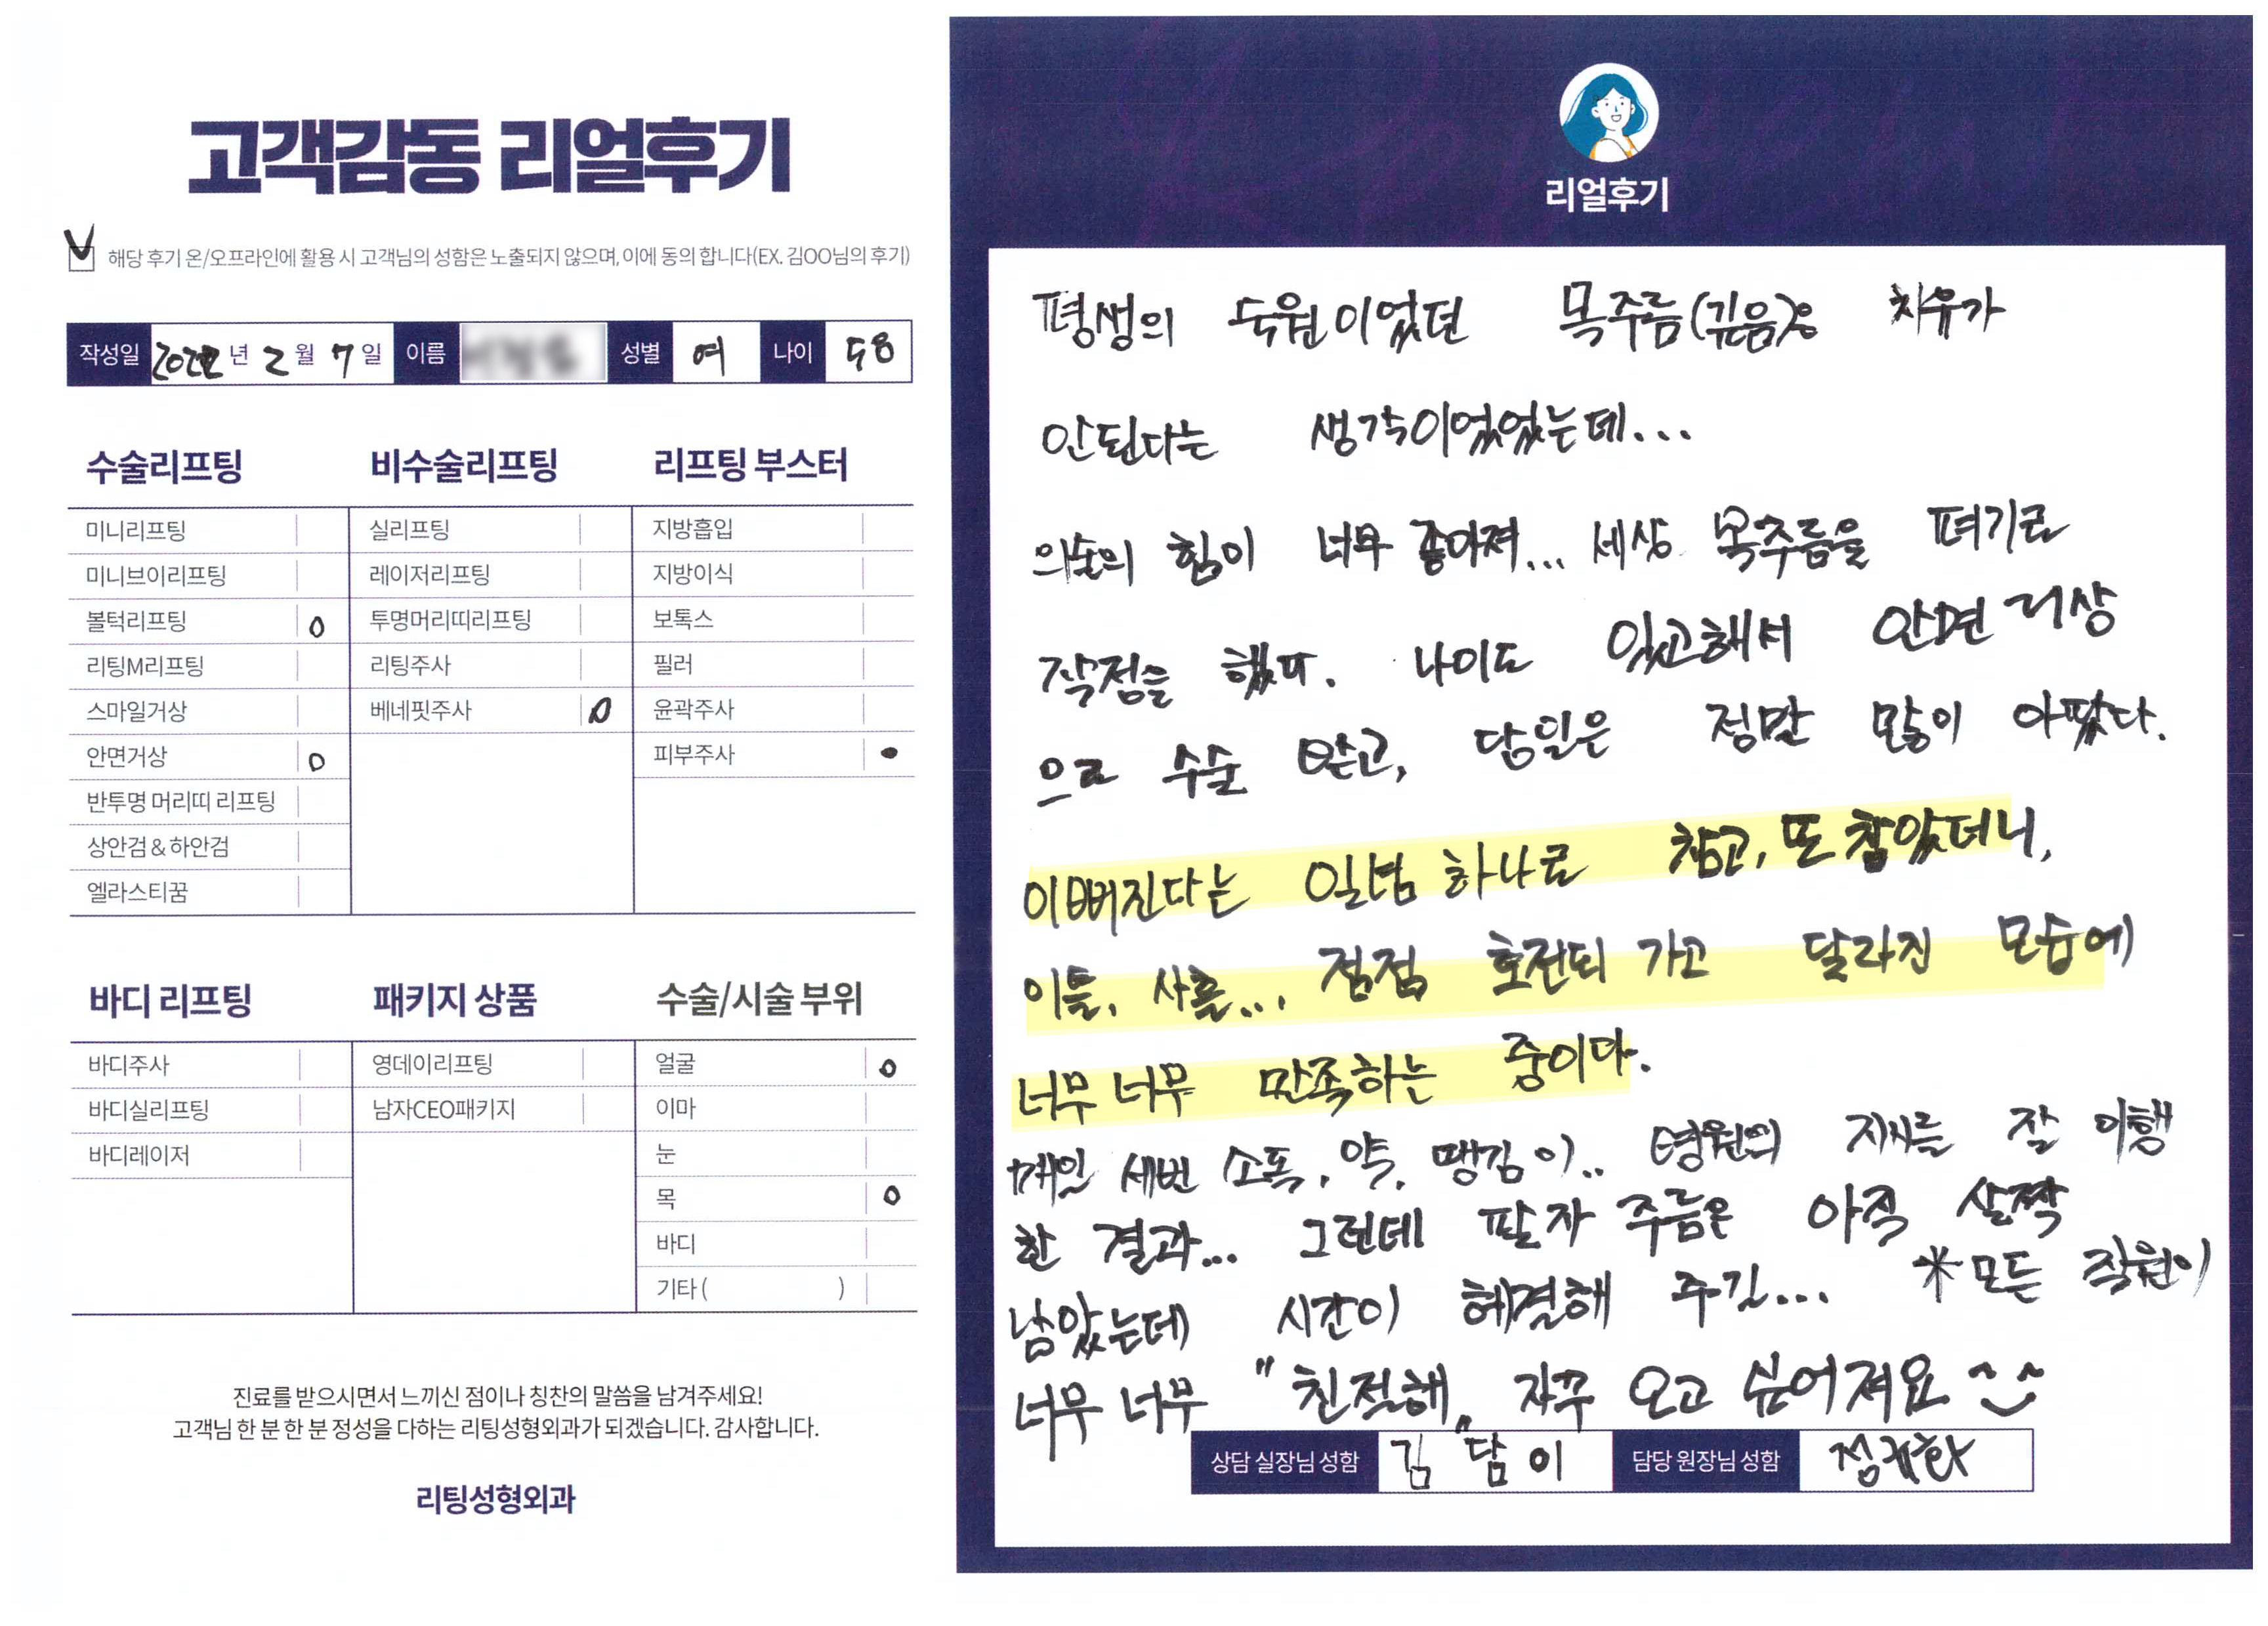 고객감동 리얼후기
해당 후기 온/오프라인에 활용 시 고객님의 성함은 노출되지 않으며, 이에 동의 합니다(EX. 김OO님의 후기)
작성일 2022 년 2 월 7 일 이름 성별 여 나이 58
수술리프팅
미니리프팅
미니브이리프팅
볼턱리프팅 O
리팅M리프팅
스마일거상
안면거상 O
반투명 머리띠 리프팅
상안검 & 하안검
엘라스티꿈
비수술리프팅
실리프팅
레이저리프팅
투명머리띠리프팅
리팅주사
베네핏주사 O
리프팅 부스터
지방흡입
지방이식
보톡스
필러
윤곽주사
피부주사
바디 리프팅
바디주사
바디실리프팅
바디레이저
패키지 상품
영데이리프팅
남자CEO패키지
수술/시술 부위
얼굴 O
이마
눈
목 O
바디
기타 ( )
진료를 받으시면서 느끼신 점이나 칭찬의 말씀을 남겨주세요!
고객님 한 분 한 분 정성을 다하는 리팅성형외과가 되겠습니다. 감사합니다.
리팅성형외과
리얼후기
평생의 숙원이었던 목주름(깊음)은 치유가
안된다는 생각이었었는데...
의술의 힘이 너무 좋아져... 세상 목주름을 펴기로
작정을 했다. 나이도 있고해서 안면거상
으로 수술 받고, 당일은 정말 많이 아팠다.
이뻐진다는 일념 하나로 참고, 또 참았더니,
이틀, 사흘... 점점 호전되 가고 달라진 모습에
너무 너무 만족하는 중이다.
매일 세번 소독, 약, 땡김이.. 병원의 지시를 잘 이행
한 결과... 그런데 팔자 주름은 아직 살짝
남았는데 시간이 해결해 주길... *모든 직원이
너무 너무 "친절해" 자꾸 오고 싶어져요
상담 실장님 성함 김담이 담당 원장님 성함